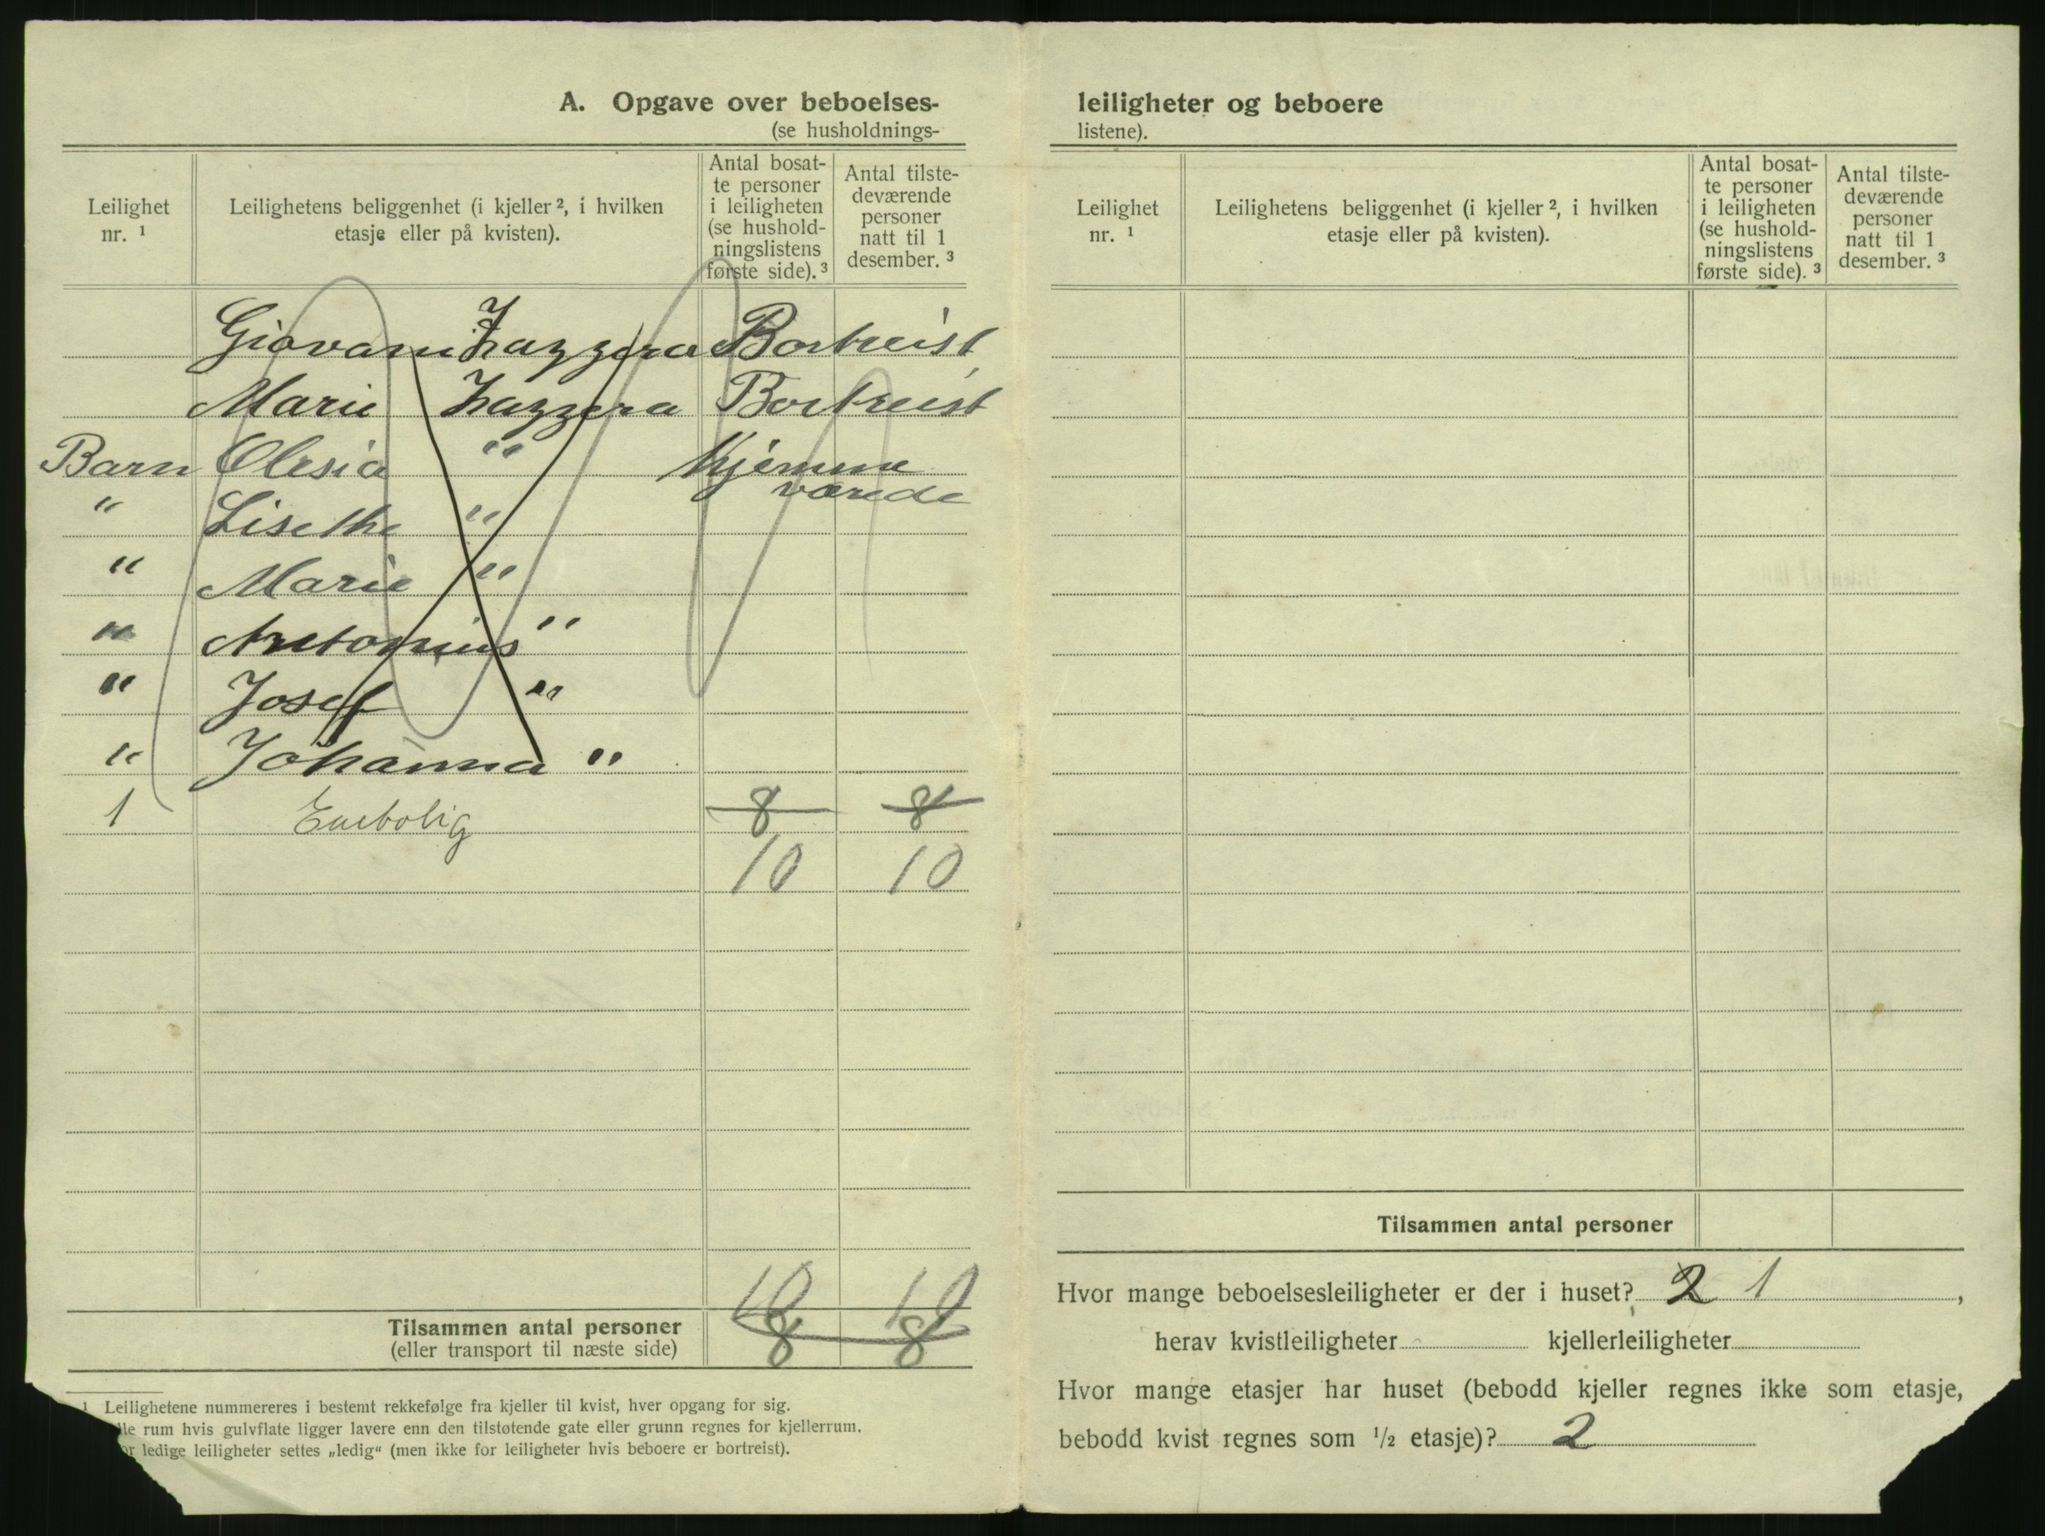 A. Opgave over beboelses-
(se husholdnings-
Leilighet nr. ¹
Leilighetens beliggenhet (i kjeller ², i hvilken etasje eller på kvisten).
Antal bosat-
te personer
i leiligheten
(se hushold-
ningslistens
første side). ³
Antal tilste-
deværende
personer
natt til 1
desember. ³
Giovani Zazzera Bortreist
Marie Zazzera Bortreist
Barn Olesia " Hjemme
værede
" Lisethe "
" Marie "
" Antonius "
" Josef "
" Johanna "
1 Enebolig 8 8
10 10
10 10
Tilsammen antal personer 8 8
(eller transport til næste side)
¹ Leilighetene nummereres i bestemt rekkefølge fra kjeller til kvist, hver opgang for sig.
rum hvis gulvflate ligger lavere enn den tilstøtende gate eller grunn regnes for kjellerrum.
ledige leiligheter settes „ledig“ (men ikke for leiligheter hvis beboere er bortreist).
leiligheter og beboere
listene).
Leilighet nr. ¹
Leilighetens beliggenhet (i kjeller ², i hvilken etasje eller på kvisten).
Antal bosat-
te personer
i leiligheten
(se hushold-
ningslistens
første side). ³
Antal tilste-
deværende
personer
natt til 1
desember. ³
Tilsammen antal personer
Hvor mange beboelsesleiligheter er der i huset? 2 1,
herav kvistleiligheter kjellerleiligheter
Hvor mange etasjer har huset (bebodd kjeller regnes ikke som etasje,
bebodd kvist regnes som ½ etasje)? 2